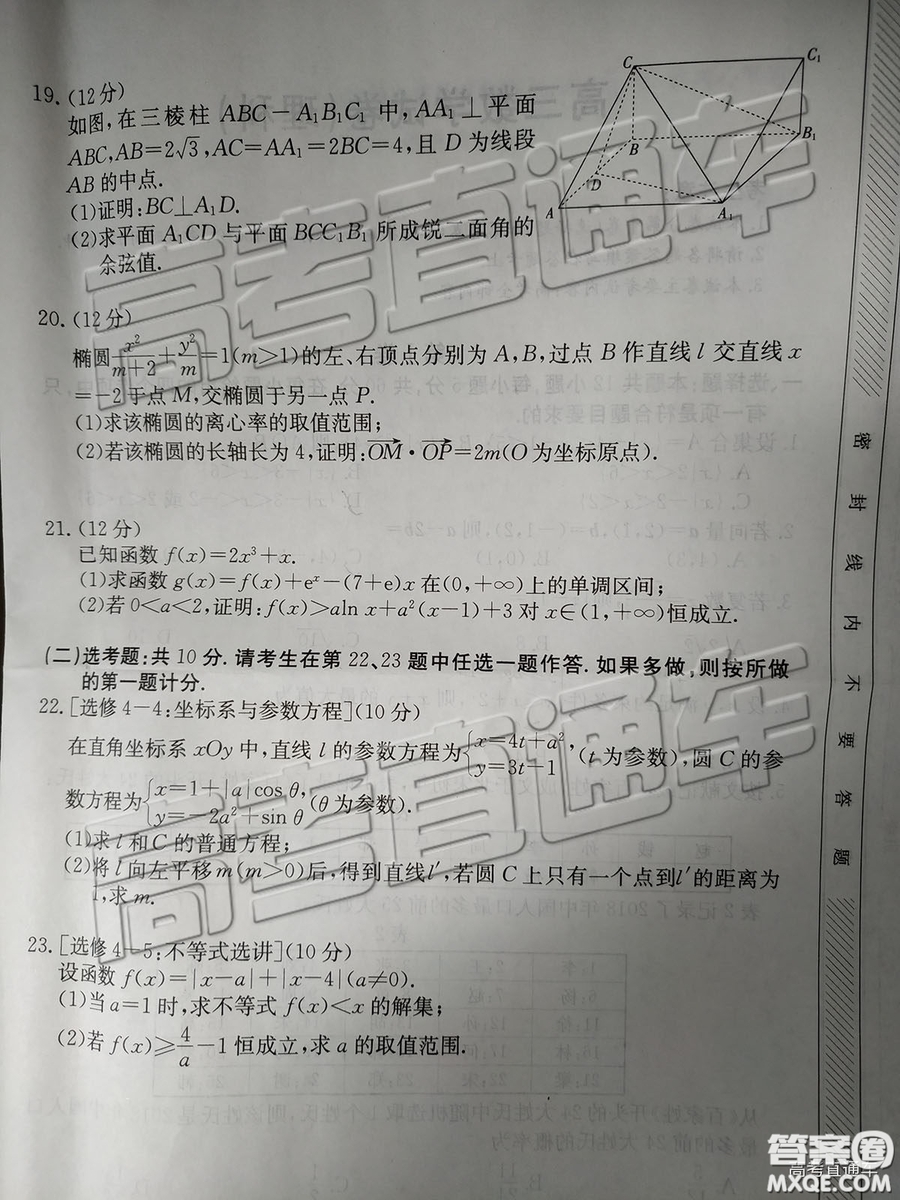 19.(12分)
如图,在三棱柱 ABC-A₁B₁C₁ 中,AA₁⊥平面
ABC,AB=2√3,AC=AA₁=2BC=4,且 D 为线段
AB 的中点.
(1)证明:BC⊥A₁D.
(2)求平面 A₁CD 与平面 BCC₁B₁ 所成锐二面角的
余弦值.
C
C₁
B
B₁
D
A
A₁
20.(12分)
椭圆x²/(m+2)+y²/m=1(m>1)的左、右顶点分别为 A,B,过点 B 作直线 l 交直线 x
=-2于点 M,交椭圆于另一点 P.
(1)求该椭圆的离心率的取值范围;
(2)若该椭圆的长轴长为 4,证明:OM→·OP→=2m(O 为坐标原点).
21.(12分)
已知函数 f(x)=2x³+x.
(1)求函数 g(x)=f(x)+eˣ-(7+e)x 在(0,+∞)上的单调区间;
(2)若 0<a<2,证明:f(x)>aln x+a²(x-1)+3 对 x∈(1,+∞)恒成立.
(二)选考题:共 10 分.请考生在第 22、23 题中任选一题作答.如果多做,则按所做
的第一题计分.
22.[选修 4-4:坐标系与参数方程](10 分)
在直角坐标系 xOy 中,直线 l 的参数方程为{x=4t+a², y=3t-1 (t 为参数),圆 C 的参
数方程为{x=1+|a|cos θ, y=-2a²+sin θ (θ 为参数).
(1)求 l 和 C 的普通方程;
(2)将 l 向左平移 m(m>0)后,得到直线 l′,若圆 C 上只有一个点到 l′的距离为
1,求 m.
23.[选修 4-5:不等式选讲](10 分)
设函数 f(x)=|x-a|+|x-4|(a≠0).
(1)当 a=1 时,求不等式 f(x)<x 的解集;
(2)若 f(x)≥4/a-1 恒成立,求 a 的取值范围.
密封线内不要答题
高考直通车
高考直通车
答案圈
高考直通车
MXQE.COM